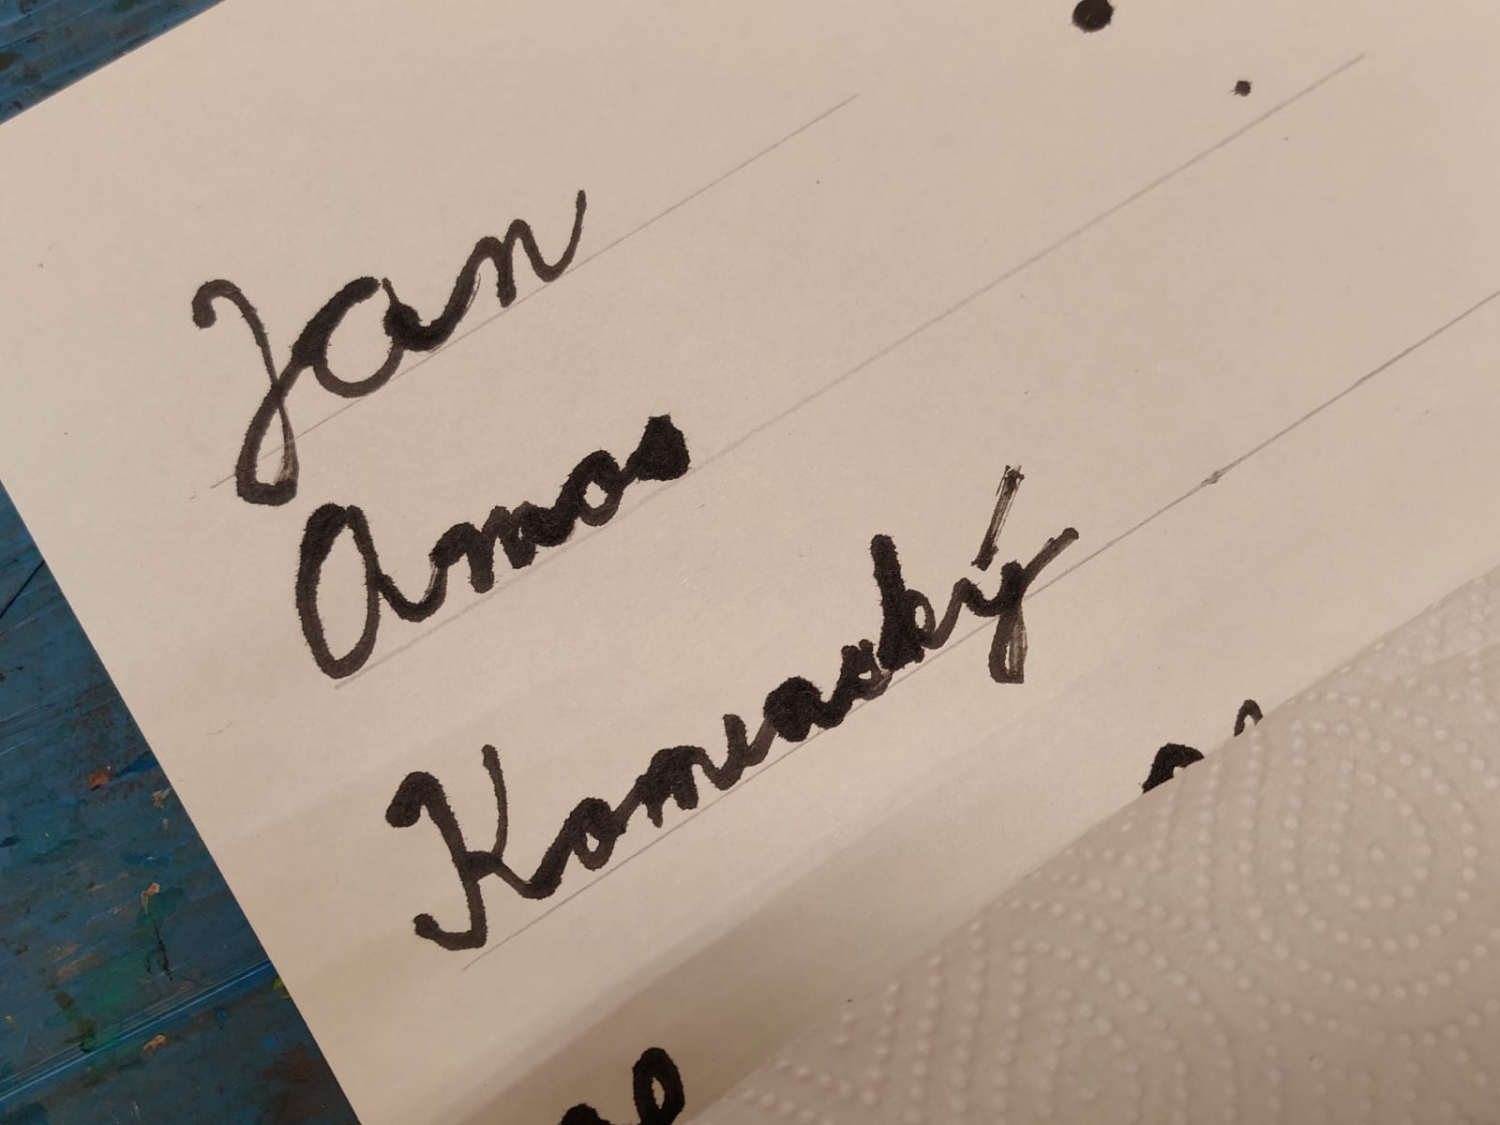 Jan
Amos
Komenský